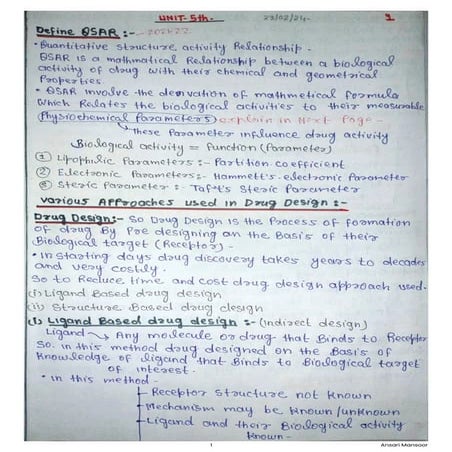 UNIT- 5th.
23/02/24-
1
Define QSAR :-
• Quantitative structure activity Relationship -
QSAR is a mathmatical Relationship between a biological
activity of drug with their chemical and geometrical
Properties.
• QSAR involve the derivation of mathmetical formula
Which Relates the biological activities to their measurable
(Physiochemical Parameters) explain in Next Page -
these Parameter influence drug activity
Biological activity = function (Parameter)
① Lipophilic Parameters :- Partition coefficient
② Electronic Parameters :- Hammett's electronic Parameter
③ Steric Parameter :- Taft's Steric Parameter
various Approaches used in Drug Design :-
Drug Design:- So Drug Design is the Process of formation
of drug By Pre designing on the Basis of their
Biological target (Receptor) -
• In starting days drug discovery takes years to decades
and very costly.
So to Reduce time and cost drug design approach used.
(i) Ligand Based drug design
(ii) Structure Based drug design
(i) Ligand Based drug design :- (indirect design)
Ligand → Any molecule or drug that Binds to Receptor
So. in this method drug designed on the Basis of
Knowledge of ligand that Binds to Biological target
of interest.
• in this method -
Receptor Structure not known
Mechanism may be known/unknown
Ligand and their Biological activity
known -
1
Ansari Mansoor